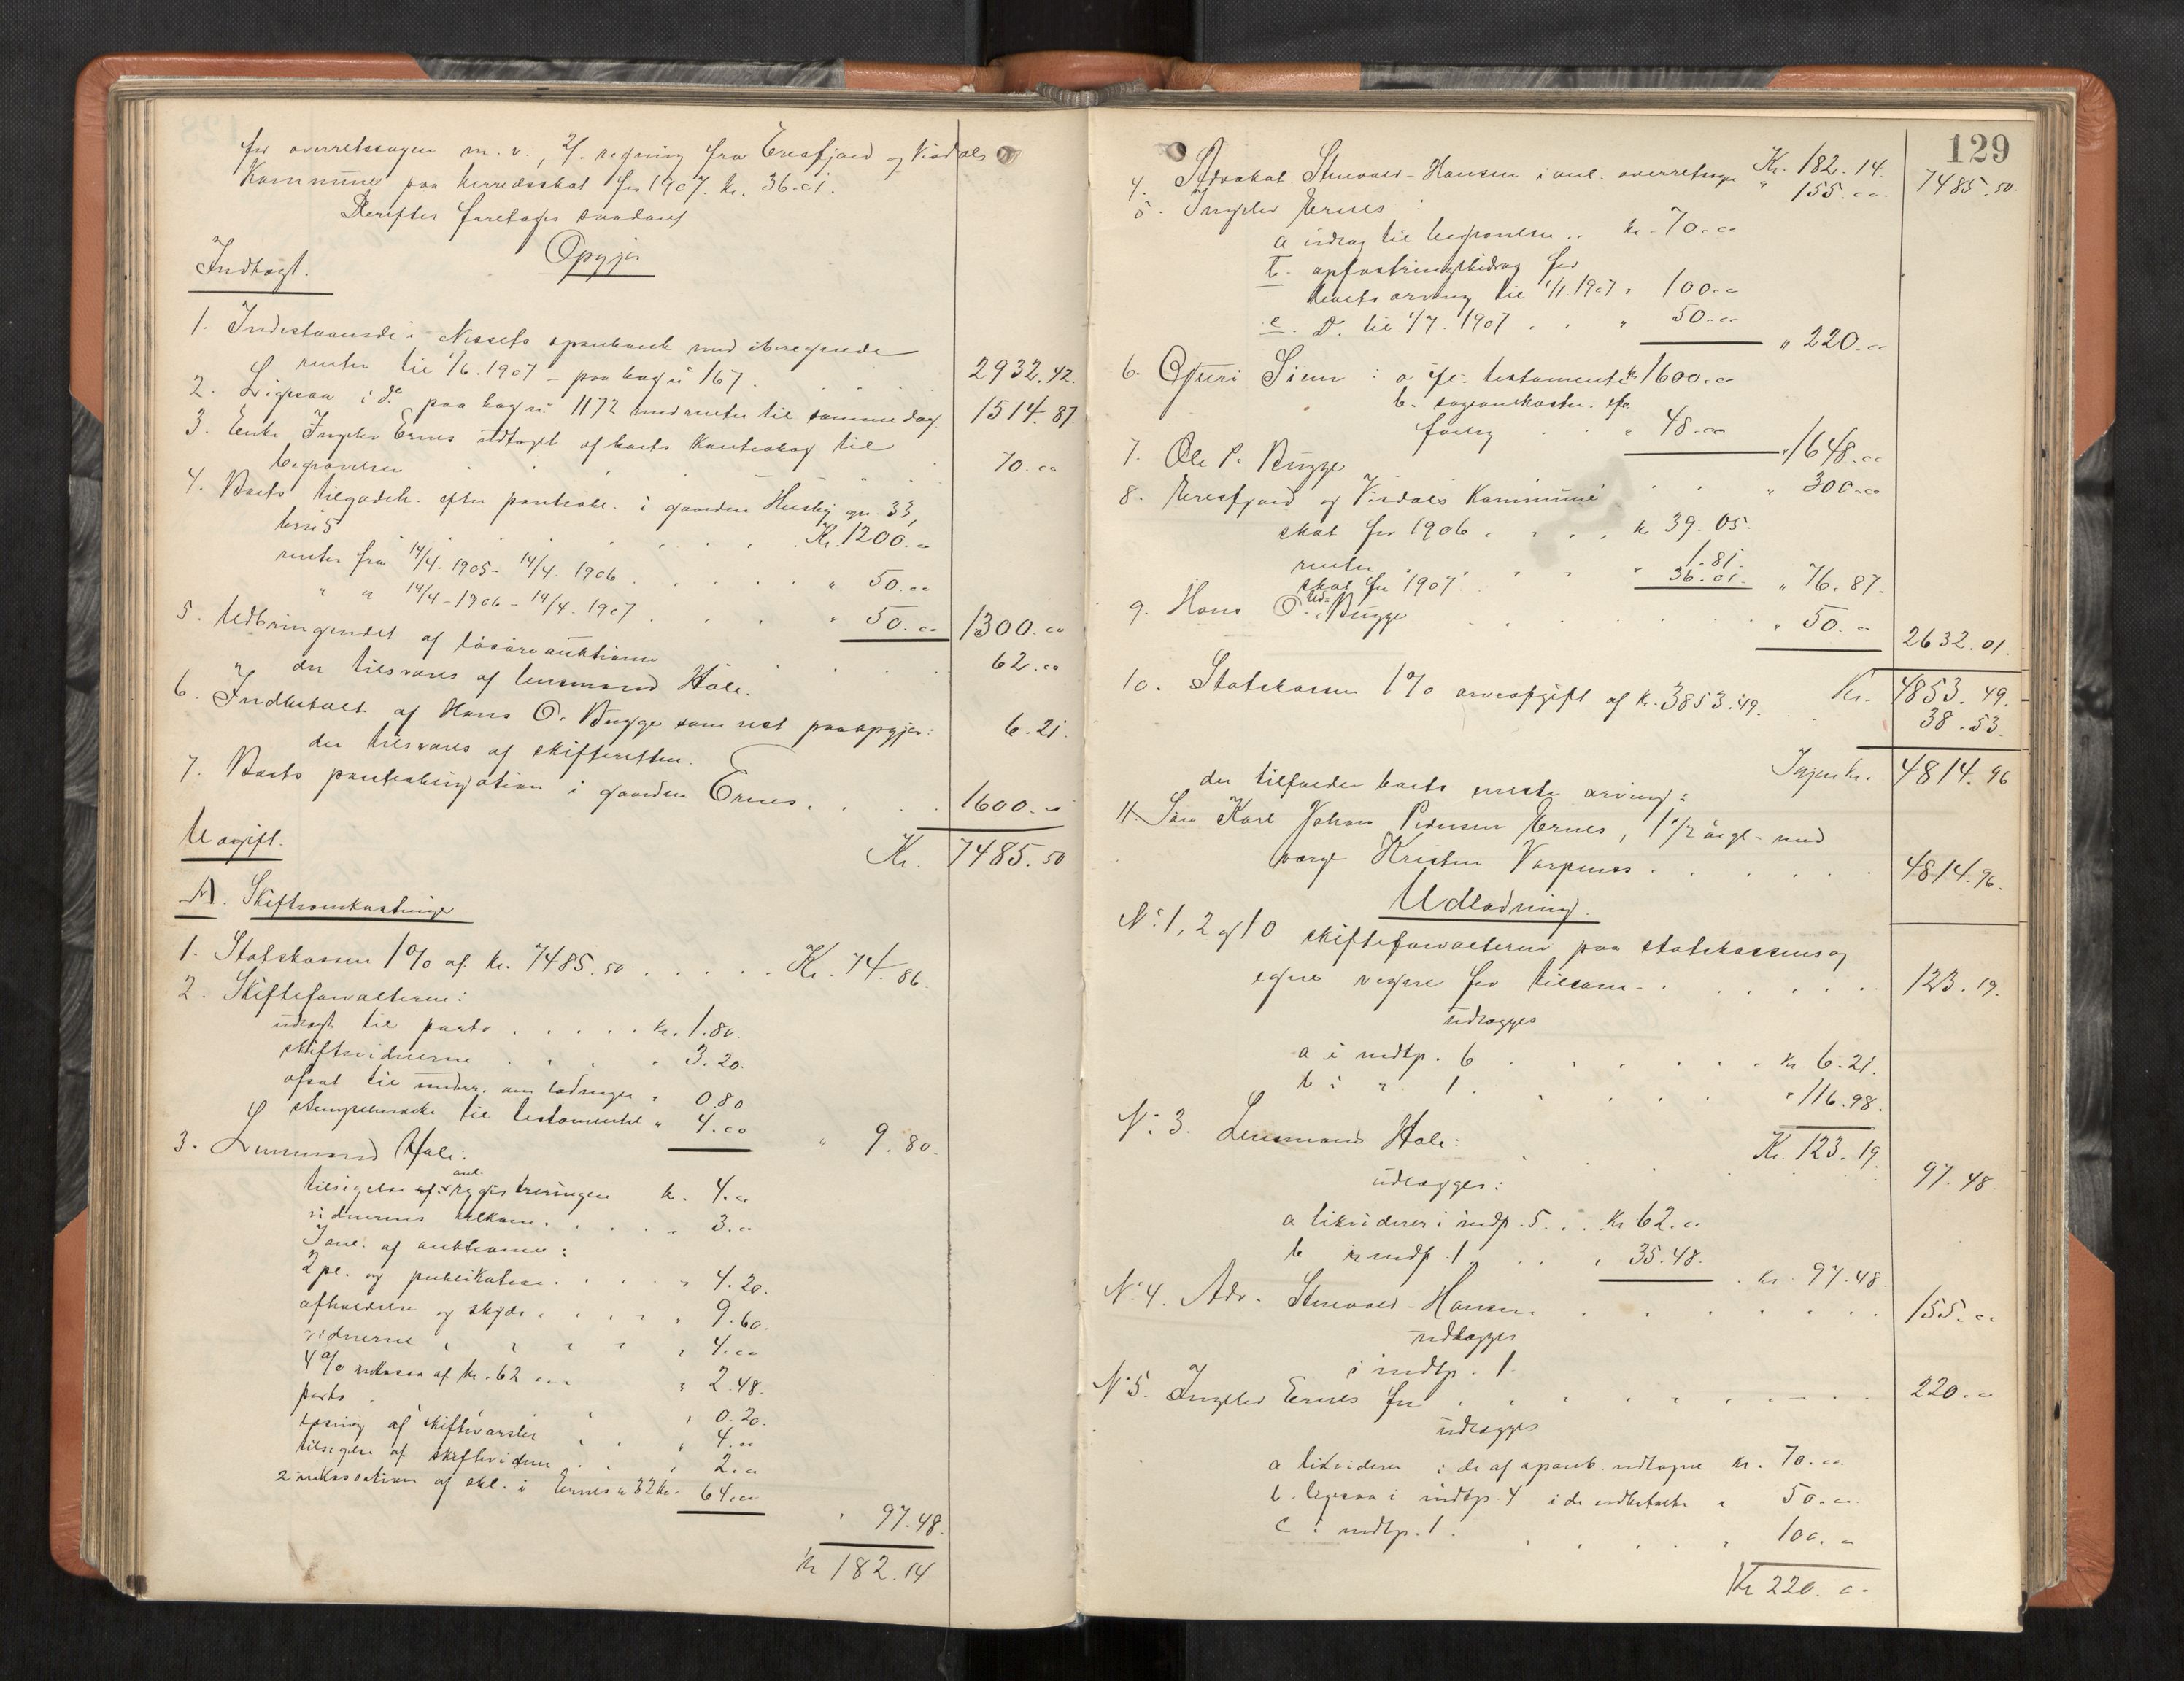 for overretssagen m.v., 2/. regning fra Eresfjord og Visdals
Kommune paa herredsskat for 1907. kr. 36.01.
Derefter foretages saadant
Opgjør
Indtægt.
1. Indestaaende i Nessets sparebank med iberegnede
renter til 1/6.1907 - paa bog nr 167 . . . . 2932.42.
2. Ligesaa i do paa bog nr 1172 med renter til samme dag 1514.87
3. Enke Ingeler Ernes udtaget af boets kontrabog til
begravelsen . . . . . 70.00
4. Boets tilgodeh. efter panteobl. i gaarden Husby gn. 33,
brn 5 . . . . . Kr. 1200.00
renter fra 14/4. 1905 - 14/4. 1906 . . . . " 50.00
" " 14/4-1906 - 14/4. 1907 . . . " 50.00 1300.00
5. Udbringendet af løsøreauktionen . . . . 62.00
der tilsvares af lensmand Hole.
6. Indbetalt af Hans O. Bugge som rest paa opgjør: 6.21.
der tilsvares af skifteretten.
7. Boets panteobligation i gaarden Ernes. . . . 1600.00
Kr. 7485.50
Udgift.
A. Skifteomkostninger
1. Statskassen 1% af kr. 7485.50 . . . . . Kr. 74.86.
2. Skifteforvalteren:
udlagt til porto . . . . . kr. 1.80.
skiftevidnerne . . . . " 3.20.
afsat til underr. om lodninger " 0.80
stempelmærke til testamentet " 4.00 " 9.80.
3. Lensmand Hole:
tilsigelse af anl. registreringen kr. 4.00
vidnernes . . . . . " 3.00
I anl. af auktionen:
2 pl. og publikation. . . . " 4.20.
afholdelse og skyds . . . . " 9.60.
vidnerne . . . . " 4.00
4% inkasso af kr. 62 . . . " 2.48.
porto . . . . " 0.20.
af skiftevarsler . . " 4.00
tilsigelse af skiftevidner . . " 2.00
2 inkassation af obl. i Ernes a 32 kr. 64.00
" 97.48.
Kr 182.14
129
Kr. 182.14. 7485.50.
4. Advokat Stuevold-Hansen i anl. overretssagen " 155.00.
5. Ingeler Ernes:
a udlæg til begravelsen . . kr. 70.00
b. opfostringsbidrag for
boets arving til 1/1.1907 " 100.00
c. Do. til 1/7. 1907 . . " 50.00 " 220.00
6. Guri Siem: a ifl. testamente kr 1600.00
b. sagsomkostn. ifø.
forlig . . . " 48.00 " 1648.00
7. Ole P. Bugge . . . " 300.00
8. Eresfjord og Visdals Kommune
skat for 1906 . . . . kr 39.05.
renter . . . . " 1.81.
skat for 1907. 36.01. " 76.87.
9. Hans O. Bugge . . . . . " 50.00 2632.01.
Kr. 4853.49.
10. Statskassen 1% arveafgift af kr. 3853.49. . . 38.53.
Igjen kr. 4814.96
der tilfalder boets eneste arving:
11. Søn Karl Johan Pedersen Ernes, 1 1/2 aar gl. med
værge Kristen Varpenes . . . . . . 4814.96.
Udlodning.
No: 1, 2 og 10 skifteforvalteren paa statskassens og
egne vegne for tilsam. . . . . . . 123.19.
udlægges
a i indtp. 6 . . . . . . kr 6.21.
b i " 1 . . . . . " 116.98.
Kr. 123.19.
No: 3. Lensmand Hole: . . . . . 97.48.
udlægges:
a likviderer i indtp. 5. . . kr 62.00
b i indtp. 1 . . " 35.48. . kr. 97.48.
No: 4. Adv. Stuevold-Hansen . . . . . . . 155.00
udlægges
i indtp. 1.
No 5. Ingeler Ernes for . . . . . . . . 220.00
udlægges
a likviderer i de af spareb. udtagne kr. 70.00
b. ligesaa i indtp. 4 i de indbetalte " 50.00
c i indtp. 1. . . . . . " 100.00
Kr 220.00